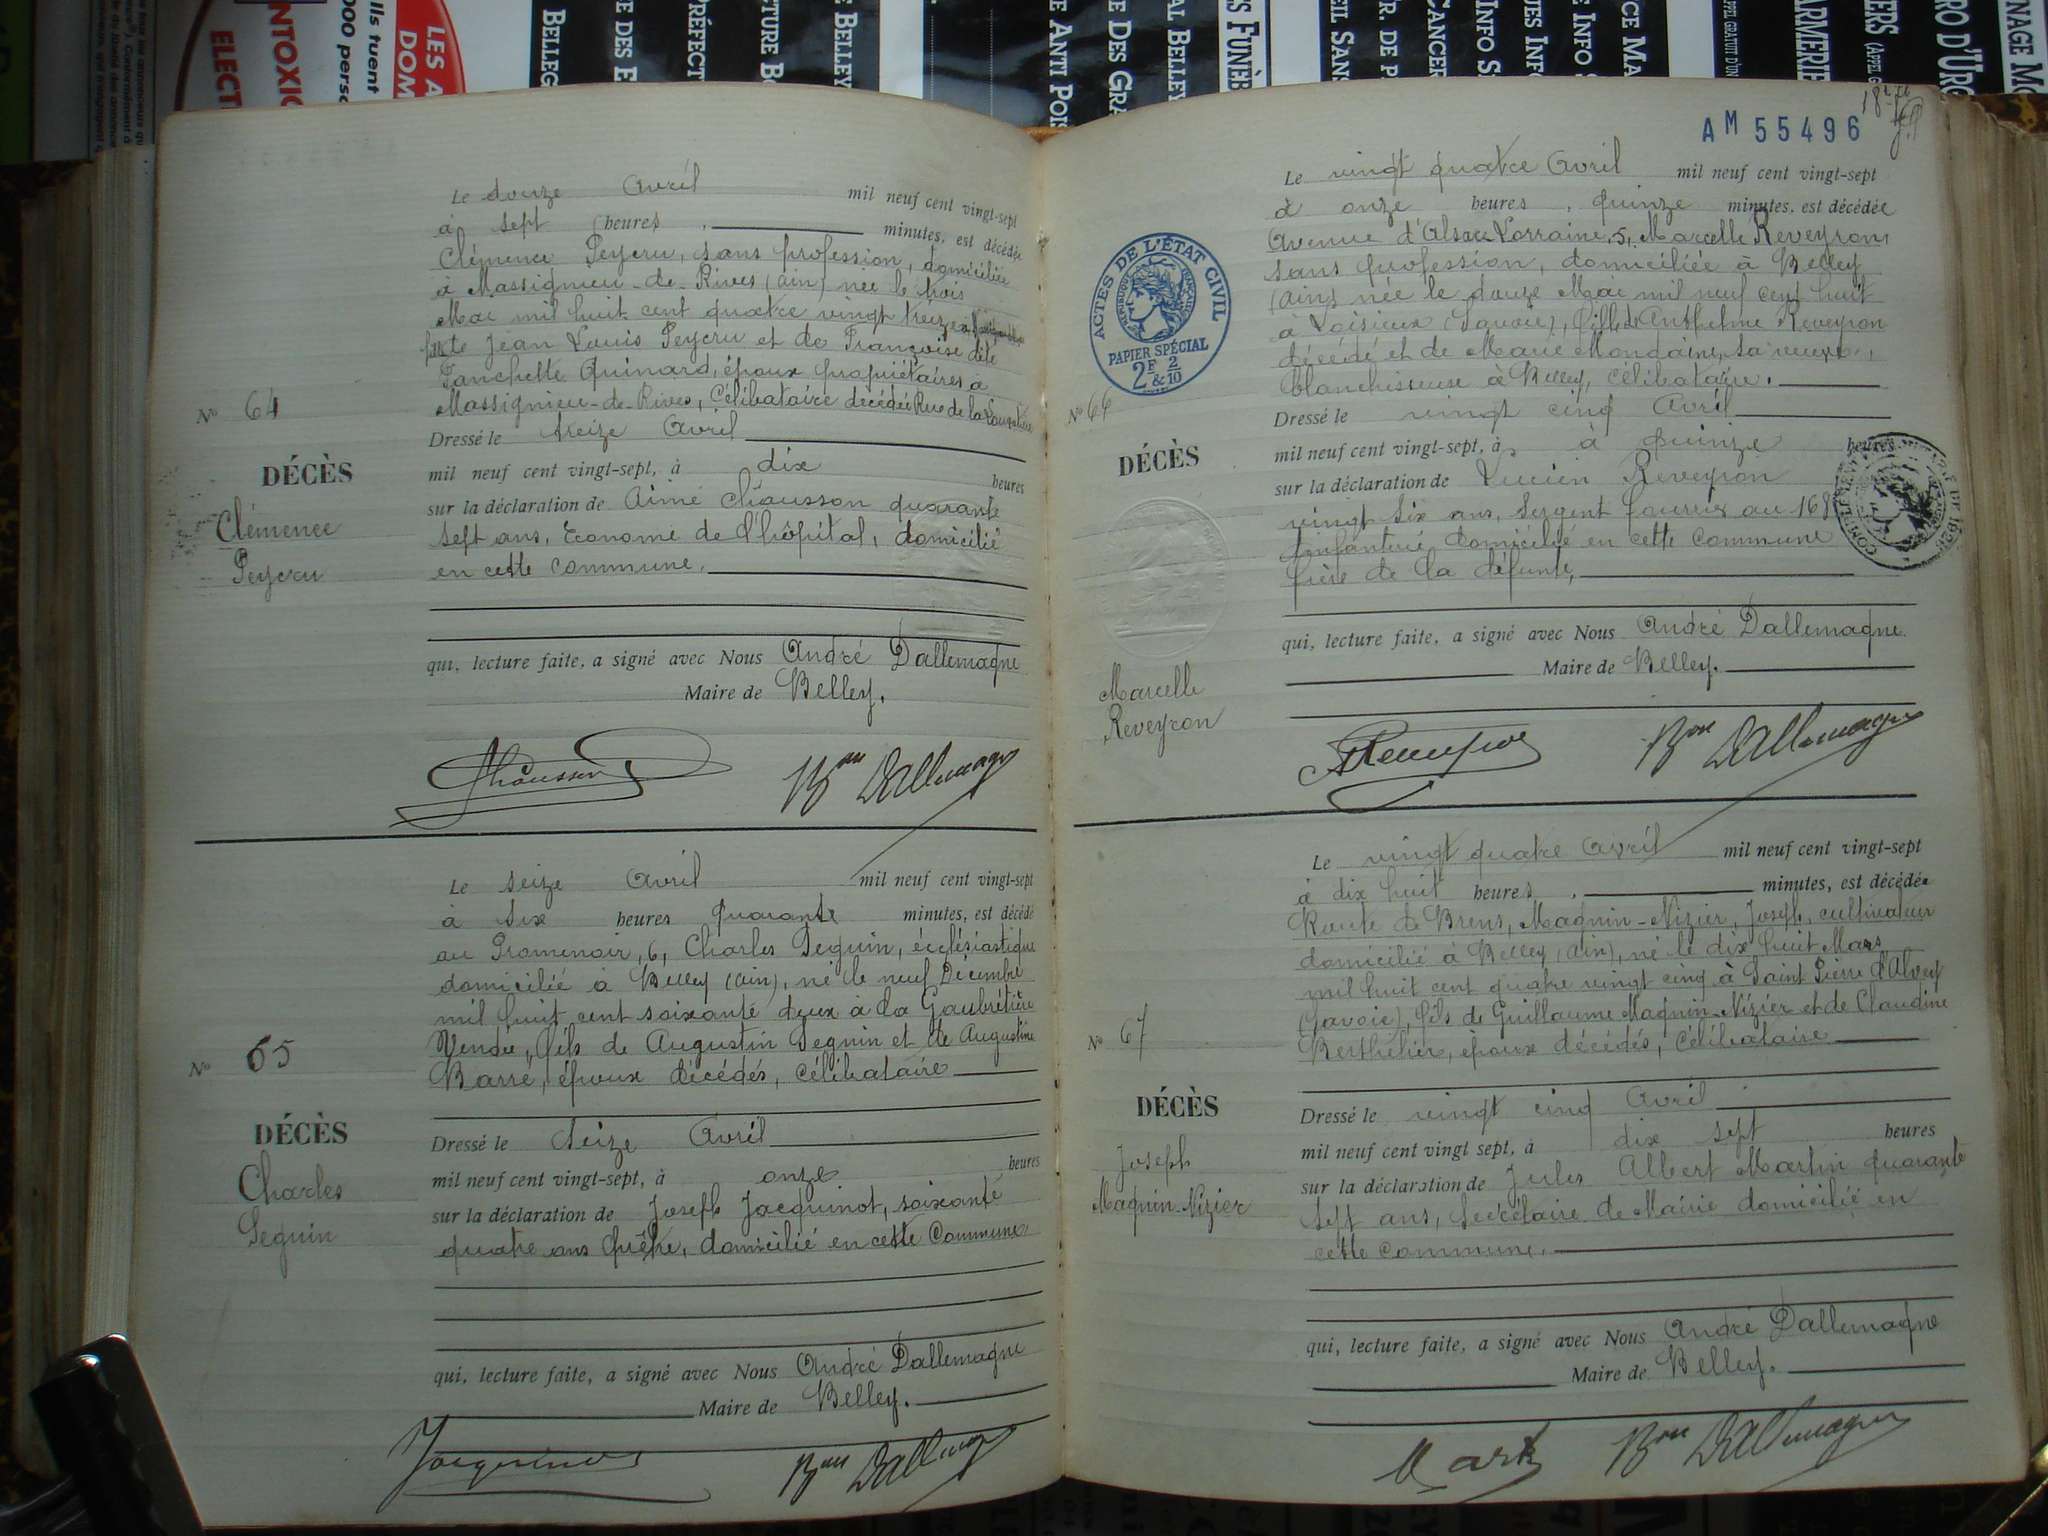 LES A
DOM
Ils tuent
000 perso
NTOXIC
ELECT
BELLEG
E DES E
PRÉFECT
CTURE B
E BELLEY
E ANTI POIS
E DES GRA
AL BELLEY
S FUNÈB
EIL SANS
R. DE P
CANCER
INFO S
UES INFO
E INFO S
CE MA
ARMERIE
IERS (APPEL G
RO D'URG
NAGE MO
Le douze Avril mil neuf cent vingt-sept
à sept heures, minutes, est décédée
Clémence Peycru, sans profession, domiciliée
à Massignieu-de-Rives (Ain) née le trois
Mai mil huit cent quatre vingt treize à
fille de Jean Louis Peycru et de Françoise dite
Fanchette Quinard, époux propriétaires à
Massignieu-de-Rives, Célibataire décédée Rue de la
No 64
DÉCÈS
Clémence
Peycru
Dressé le treize Avril
mil neuf cent vingt-sept, à dix heures
sur la déclaration de Aimé Chausson quarante
sept ans, Econome de l'hôpital, domicilié
en cette commune.
qui, lecture faite, a signé avec Nous André Dallemagne
Maire de Belley.
Chausson Bon Dallemagne
Le seize Avril mil neuf cent vingt-sept
à six heures quarante minutes, est décédé
au Promenoir, 6, Charles Seguin, écclésiastique
domicilié à Belley (Ain), né le neuf Décembre
mil huit cent soixante deux à la Gaubrétière
Vendée, fils de Augustin Seguin et de Augustine
Barré, époux décédés, célibataire
No 65
DÉCÈS
Charles
Seguin
Dressé le Seize Avril
mil neuf cent vingt-sept, à onze heures
sur la déclaration de Joseph Jacquinot, soixante
quatre ans Prêtre, domicilié en cette Commune
qui, lecture faite, a signé avec Nous André Dallemagne
Maire de Belley.
Jacquinot Bon Dallemagne
AM 55496
Le vingt quatre Avril mil neuf cent vingt-sept
à onze heures, quinze minutes, est décédée
Avenue d'Alsace Lorraine, 5, Marcelle Reveyron
sans profession, domiciliée à Belley
(Ain) née le douze Mai mil neuf cent huit
à Loisieux (Savoie), fille de Anthelme Reveyron
décédé et de Marie Mondaine, sa veuve,
blanchisseuse à Belley, célibataire.
ACTES DE L'ÉTAT CIVIL
RÉPUBLIQUE FRANÇAISE
PAPIER SPÉCIAL
2F & 2/10
No 66
DÉCÈS
Marcelle
Reveyron
Dressé le vingt cinq Avril
mil neuf cent vingt-sept, à, à quinze heures
sur la déclaration de Lucien Reveyron
vingt six ans, Sergent fourrier au 168
Infanterie domicilié en cette commune
frère de la défunte,
qui, lecture faite, a signé avec Nous André Dallemagne
Maire de Belley.
Reveyron Bon Dallemagne
Le vingt quatre Avril mil neuf cent vingt-sept
à dix huit heures, minutes, est décédé
Route de Brens, Magnin-Nizier, Joseph, cultivateur
domicilié à Belley (Ain), né le dix huit Mars
mil huit cent quatre vingt cinq à Saint Pierre d'Alvey
(Savoie), fils de Guillaume Magnin-Nizier et de Claudine
Berthelier, époux décédés, Célibataire
No 67
DÉCÈS
Joseph
Magnin-Nizier
Dressé le vingt cinq Avril
mil neuf cent vingt sept, à dix sept heures
sur la déclaration de Jules Albert Martin quarante
sept ans, Secrétaire de Mairie domicilié en
cette commune.
qui, lecture faite, a signé avec Nous André Dallemagne
Maire de Belley.
Martin Bon Dallemagne